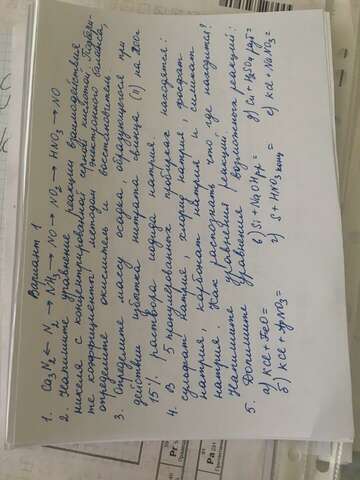 Вариант 1
1. Ca₃N₂ ← N₂ → NH₃ → NO → NO₂ → HNO₃ → NO
2. Напишите уравнение реакции взаимодействия
никеля с концентрированной серной кислотой. Подбери-
те коэффициенты методом электронного баланса,
определите окислитель и восстановитель
3. Определите массу осадка, образующегося при
действии избытка нитрата свинца (II) на 200г
15% раствора иодида натрия.
4. В 5 пронумерованных пробирках находятся:
сульфат натрия, хлорид натрия, фосфат
натрия, карбонат натрия и силикат
натрия. Как распознать что где находится?
Напишите уравнения реакций.
5. Допишите уравнения возможных реакций:
а) KCl + =
б) KCl + AgNO₃ =
в) Si + NaOH рр =
г) S + HNO₃ конц =
д) Cu + H₂SO₄ =
е) KCl + NaNO₃ =
Pr
Pa